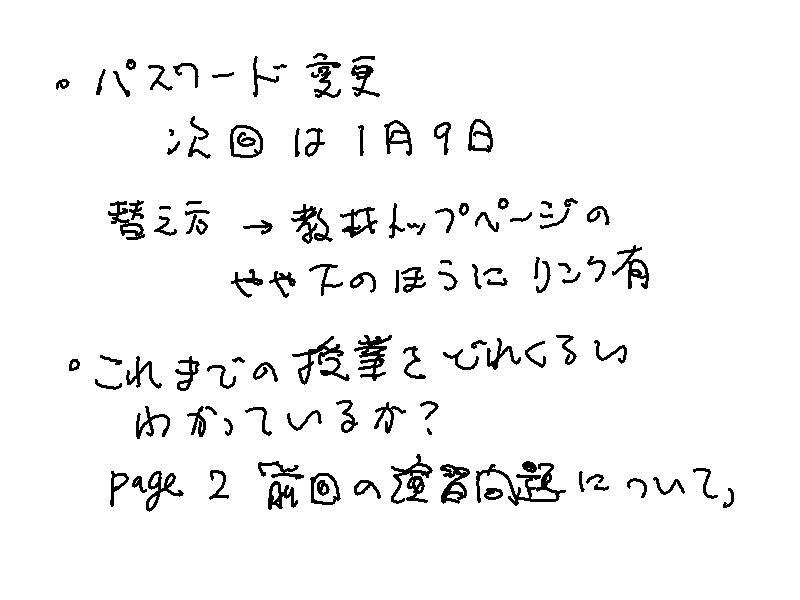 。パスワード変更
次回は1月9日
替え方 → 教材トップページの
やや下のほうにリンク有
。これまでの授業をどれくるい
わかっているか？
page 2 前回の演習問題について,